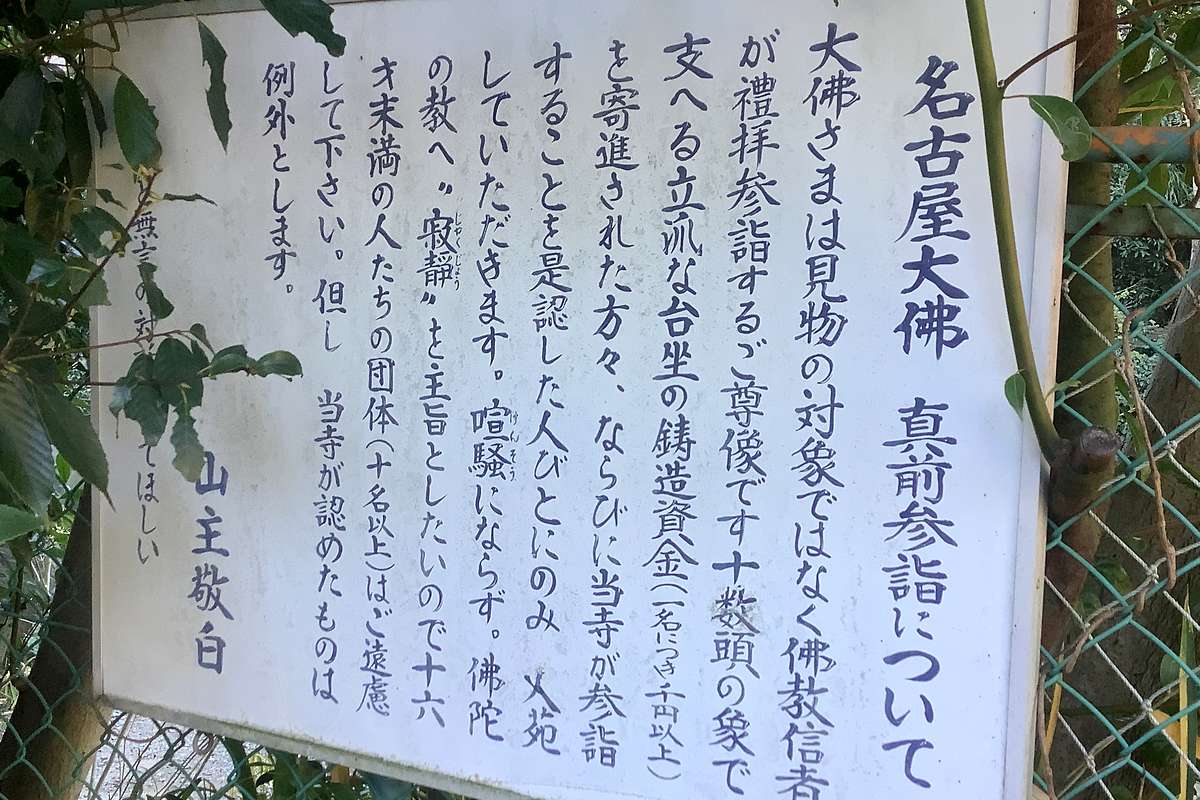 名古屋大佛 真前参詣について
大佛さまは見物の対象ではなく佛教信者
が禮拝参詣するご尊像です十数頭の象で
支へる立派な台坐の鋳造資金(一名につき千円以上)
を寄進された方々、ならびに当寺が参詣
することを是認した人びとにのみ 入苑
していただきます。喧騒にならず。佛陀
の教へ〝寂靜〟を主旨としたいので十六
才末満の人たちの団体(十名以上)はご遠慮
して下さい。但し 当寺が認めたものは
例外とします。
山主敬白
無言の対 てほしい